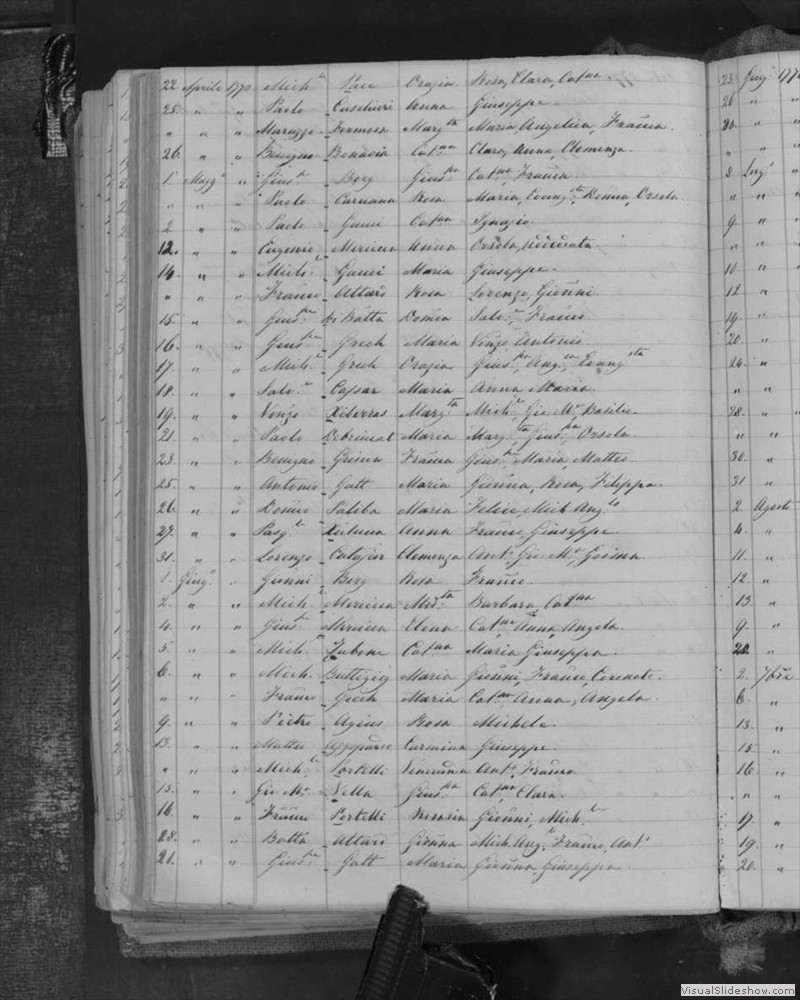 22 Aprile 1770 Mich.le Pace Orazia Rosa, Clara, Cat.na
25. " " Paolo Cuschieri Anna Giuseppe
" " " Maruzzo Formosa Marg.ta Maria, Angelica, Fran.ca.
26. " " Benigno Bonavia Cat.na Clara, Anna, Clemenza.
1. Magg.o " Gius.e Borg Gius.pa Cat.na, Fran.ca
" " " Paolo Caruana Rosa Maria, Evang.sta, Dom.ca, Orsola
2 " " Paolo Gauci Cat.na Ignazio.
12. " " Eugenio Mercieca Anna Orsola,
14. " " Mich.le Gauci Maria Giuseppe.
" " " Fran.co Attard Rosa Lorenzo, Gio.nni
15. " " Gius.pe Di Batta Dom.ca Salv.e, Fran.co
16. " " Gius.pe Grech Maria Vinzo Antonio
17. " " Mich.le Grech Orazia Gius.pa, Ang.ca, Evang.sta
18. " " Salv.e Cassar Maria Anna Maria.
19. " " Vinzo Xiberras Marg.ta Mich.le, Gio. M.a, Basilio.
21. " " Paolo Debrincat Maria Marg.ta, Gius.pa, Orsola.
23. " " Benigno Grima Fran.ca Gius.pe, Maria, Matteo.
25. " " Antonio Gatt Maria Gio.nna, Rosa, Filippa.
26. " " Dom.co Saliba Maria Felice, Mich. Ang.lo
27. " " Pasq.le Xicluna Anna Fran.co, Giuseppe.
31. " " Lorenzo Cutajar Clemenza Ant.o Gio. M.a,
1. Giug.o " Gio.nni Borg Rosa Fran.co.
2. " " Mich.le Mercieca Marg.ta Barbara, Cat.na
4. " " Gius.e Mercieca Elena Cat.na, Anna, Angela.
5. " " Mich.le Zabone Cat.na Maria Giuseppa.
6. " " Mich.le Buttigieg Maria Gio.nni, Fran.co,
" " " Fran.co Grech Maria Cat.na, Anna, Angela
9. " " Pietro Agius Rosa Michele.
13. " " Matteo Azzopardo Carmina Giuseppe.
" " " Mich.le Portelli Veneranda Ant.o, Fran.co
15. " " Gio. M.a Vella Gius.pa Cat.na, Clara.
16. " " Fran.co Portelli Rosaria Gio.nni, Mich.le
28. " " Batta Attard Gio.nna Mich. Ang.lo, Fran.co, Ant.o
21. " " Gius.pe Gatt Maria Gio.nna, Giuseppa.
23. Giug.o 1770
26. " "
30. " "
" "
8 Lug.o
" "
9. "
" "
10. "
12 "
14 "
20. "
24. "
" "
28. "
" "
30. "
31 "
2 Agosto
4. "
11. "
12. "
13. "
9. "
22. "
2. 7bre
6. "
13. "
15. "
16. "
" "
17. "
19. "
20. "
VisualSlideshow.com